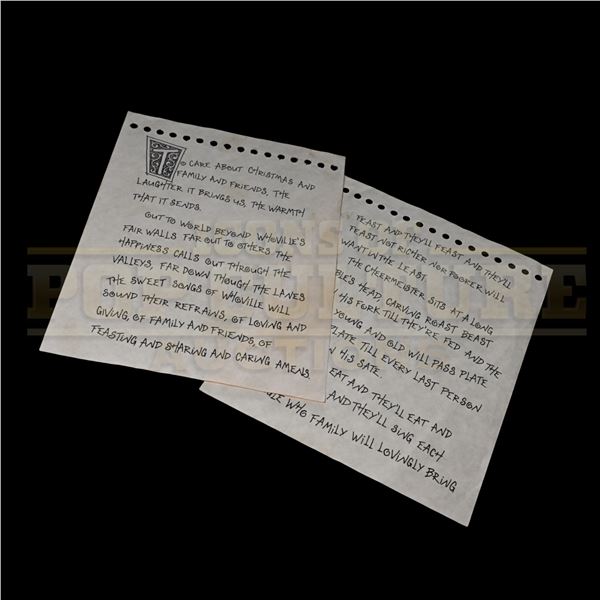 TO CARE ABOUT CHRISTMAS AND
FAMILY AND FRIENDS, THE
LAUGHTER IT BRINGS US, THE WARMTH
THAT IT SENDS.
OUT TO WORLD BEYOND WHOVILLE'S
FAIR WALLS FAR OUT TO OTHERS THE
HAPPINESS CALLS OUT THROUGH THE
VALLEYS, FAR DOWN THOUGH THE LANES
THE SWEET SONGS OF WHOVILLE WILL
SOUND THEIR REFRAINS, OF LOVING AND
GIVING, OF FAMILY AND FRIENDS, OF
FEASTING AND SHARING AND CARING AMENS.
FEAST AND THEY'LL FEAST AND THEY'LL
FEAST NOT RICHER NOR POORER WILL
WANT IN THE LEAST.
THE CHEERMEISTER SITS AT A LONG
BLE'S HEAD, CARVING ROAST BEAST
HIS FORK TILL THEY'RE FED AND THE
YOUNG AND OLD WILL PASS PLATE
LATE TILL EVERY LAST PERSON
N HIS SATE.
EAT AND THEY'LL EAT AND
AND THEY'LL SING EACH
LE WHO FAMILY WILL LOVINGLY BRING